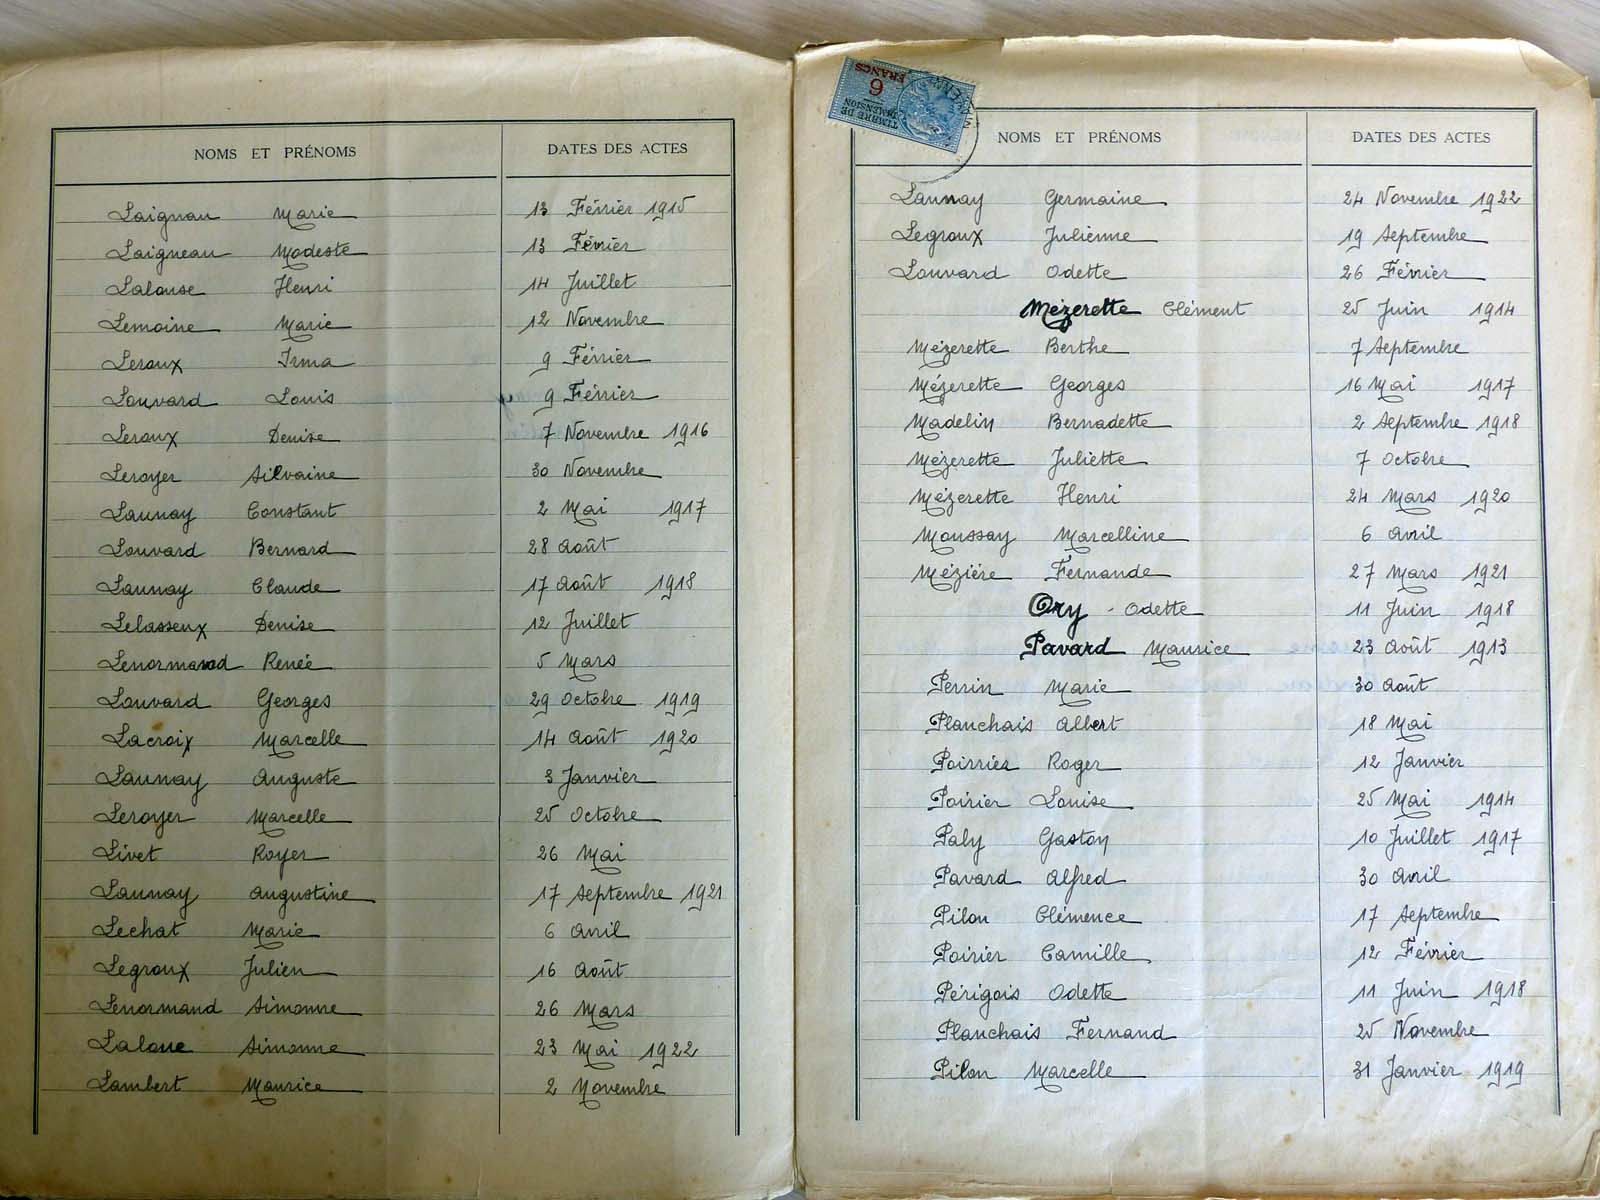 NOMS ET PRÉNOMS DATES DES ACTES
Laignau Marie 13 Février 1915
Laigneau Modeste 13 Février
Lalouse Henri 14 Juillet
Lemoine Marie 12 Novembre
Leroux Irma 9 Février
Louvard Louis 9 Février
Leroux Denise 7 Novembre 1916
Leroyer Silvaine 30 Novembre
Launay Constant 2 Mai 1917
Louvard Bernard 28 Août
Launay Claude 17 Août 1918
Lelasseux Denise 12 Juillet
Lenormand Renée 5 Mars
Louvard Georges 29 Octobre 1919
Lacroix Marcelle 14 Août 1920
Launay Auguste 3 Janvier
Leroyer Marcelle 25 Octobre
Livet Royer 26 Mai
Launay Augustine 17 Septembre 1921
Lechat Marie 6 Avril
Legroux Julien 16 Août
Lenormand Simonne 26 Mars
Laloue Simonne 23 Mai 1922
Lambert Maurice 2 Novembre
TIMBRE DE DIMENSION
6 FRANCS
NOMS ET PRÉNOMS DATES DES ACTES
Launay Germaine 24 Novembre 1922
Legroux Julienne 19 Septembre
Louvard Odette 26 Février
Mézerette Clément 25 Juin 1914
Mézerette Berthe 7 Septembre
Mézerette Georges 16 Mai 1917
Madelin Bernadette 2 Septembre 1918
Mézerette Juliette 7 Octobre
Mézerette Henri 24 Mars 1920
Moussay Marcelline 6 Avril
Mézière Fernande 27 Mars 1921
Ory - Odette 11 Juin 1918
Pavard Maurice 23 Août 1913
Perrin Marie 30 Août
Planchais Albert 18 Mai
Poirrier Roger 12 Janvier
Poirier Louise 25 Mai 1914
Paly Gaston 10 Juillet 1917
Pavard Alfred 30 Avril
Pilon Clémence 17 Septembre
Poirier Camille 12 Février
Périgois Odette 11 Juin 1918
Planchais Fernand 25 Novembre
Pilon Marcelle 31 Janvier 1919